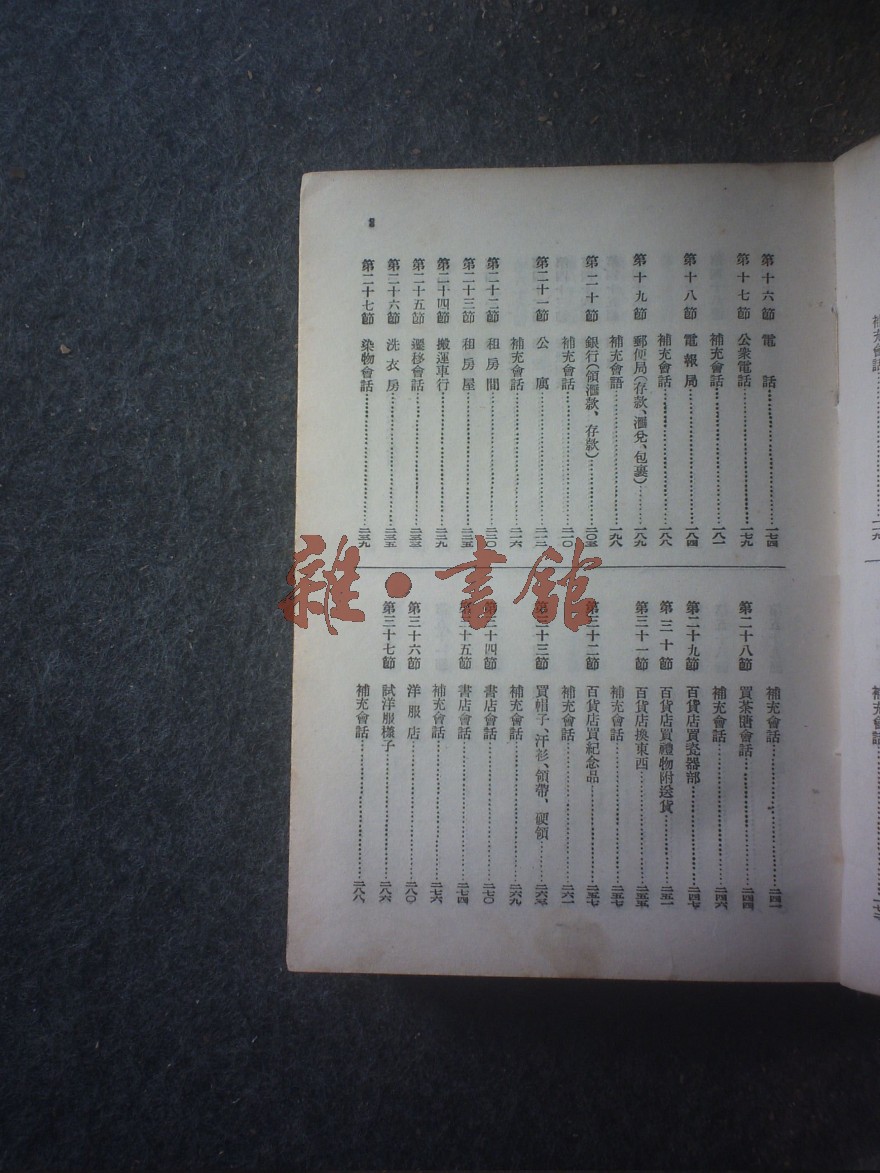 第十六節 電話 一七四
第十七節 公衆電話 一七九
補充會話 一八一
第十八節 電報局 一八四
補充會話 一八八
第十九節 郵便局(存款、滙兌、包裹) 一八九
補充會語 一九八
第二十節 銀行(領滙款、存款) 二〇三
補充會話 二一〇
第二十一節 公寓
補充會話 二一六
第二十二節 和房間 二二〇
第二十三節 和房屋 二二五
第二十四節 搬運車行 二二九
第二十五節 遷移會話 二三三
第二十六節 洗衣房 二三五
第二十七節 染物會話 二三九
補充會話 二四一
第二十八節 買茶啨會話 二四四
補充會話 二四六
第二十九節 百貨店買瓷器部 二四七
第三十節 百貨店買禮物附送貨 二五一
第三十一節 百貨店換東西 二五五
補充會話 二五七
第三十二節 百貨店買紀念品 二五七
補充會話 二六一
第三十三節 買帽子、汗衫、領帶、硬領 二六三
補充會話 二六九
第三十四節 書店會話 二七〇
第三十五節 書店會話 二七四
補充會話 二七六
第三十六節 洋服店 二八〇
第三十七節 試洋服樣子 二八六
補充會話 二八八
雜·書館